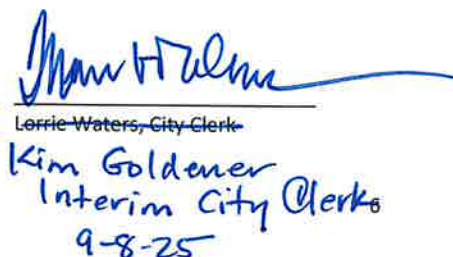 Lorrie Waters, City Clerk
Kim Goldener
Interim City Clerk
9-8-25